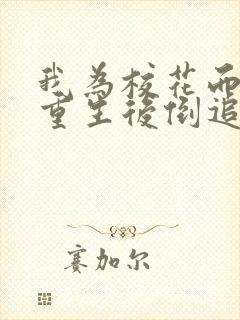 我為校花而
重生後倒追
賽加尔